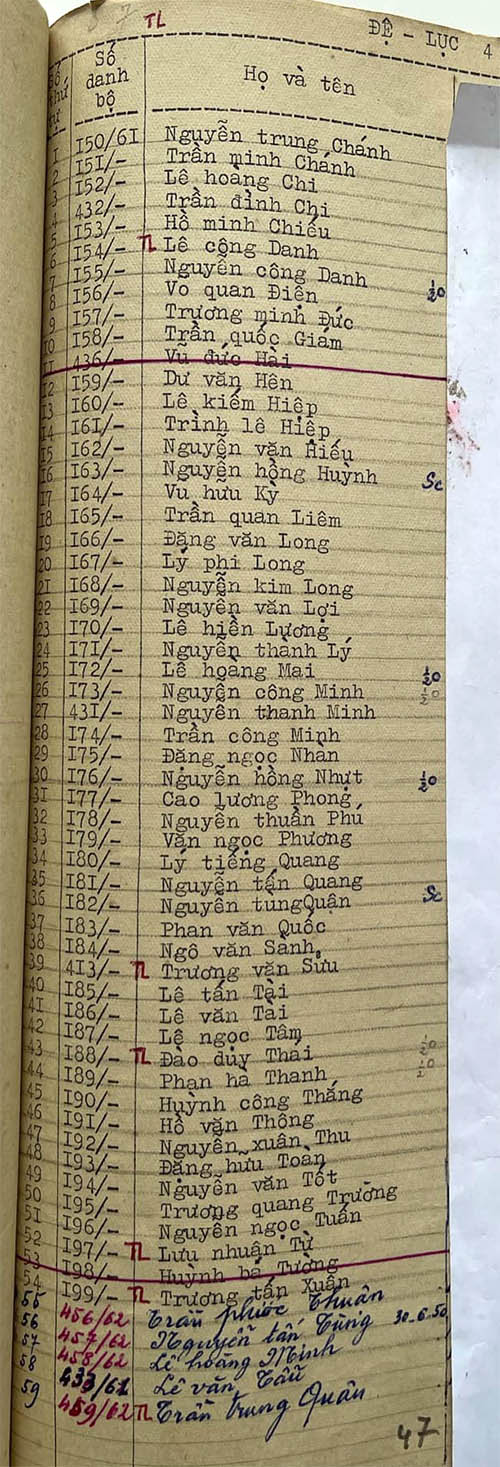 TL
ĐỆ - LỤC 4
Số thứ tự Số danh bộ Họ và tên
1 I50/6I Nguyễn trung Chánh
2 I5I/- Trần minh Chánh
3 I52/- Lê hoàng Chi
4 432/- Trần đình Chi
5 I53/- Hồ minh Chiếu
6 I54/- TL Lê công Danh
7 I55/- Nguyễn công Danh
8 I56/- Vo quan Điện ½0
9 I57/- Trương minh Đức
10 I58/- Trần quốc Giam
11 436/- Vũ đức Hải
12 I59/- Dư văn Hên
13 I60/- Lê kiếm Hiệp
14 I6I/- Trình lê Hiệp
15 I62/- Nguyễn văn Hiếu
16 I63/- Nguyễn hồng Huỳnh Sc
17 I64/- Vu hữu Kỳ
18 I65/- Trần quan Liêm
19 I66/- Đặng văn Long
20 I67/- Lý phi Long
21 I68/- Nguyễn kim Long
22 I69/- Nguyễn văn Lợi
23 I70/- Lê hiền Lương
24 I7I/- Nguyễn thành Lý
25 I72/- Lê hoàng Mai ½0
26 I73/- Nguyễn công Minh ½0
27 43I/- Nguyên thanh Minh
28 I74/- Trần công Minh
29 I75/- Đặng ngọc Nhàn
30 I76/- Nguyễn hồng Nhựt ½0
31 I77/- Cao lương Phong
32 I78/- Nguyên thuần Phú
33 I79/- Văn ngọc Phương
34 I80/- Lý tiếng Quang
35 I8I/- Nguyễn tấn Quang
36 I82/- Nguyễn tùngQuận Sc
37 I83/- Phan văn Quốc
38 I84/- Ngô văn Sành
39 4I3/- TL Trương văn Sửu
40 I85/- Lê tấn Tài
41 I86/- Lê văn Tài
42 I87/- Lê ngọc Tâm
43 I88/- TL Đào duy Thái ½0
44 I89/- Phan hà Thanh ½0
45 I90/- Huỳnh công Thắng
46 I9I/- Hồ văn Thông
47 I92/- Nguyễn xuân Thu
48 I93/- Đặng hữu Toàn
49 I94/- Nguyễn văn Tốt
50 I95/- Trương quang Trường
51 I96/- Nguyễn ngọc Tuấn
52 I97/- TL Lưu nhuận Từ
53 I98/- Huỳnh bá Tường
54 I99/- TL Trương tấn Xuân
55 456/62 Trần phước Thuân
56 457/62 Nguyễn tấn Tùng 30-6-50
57 458/62 Lê hoàng Minh
58 433/61 Lê văn Tấu
59 459/62 TL Trần trung Quân
47